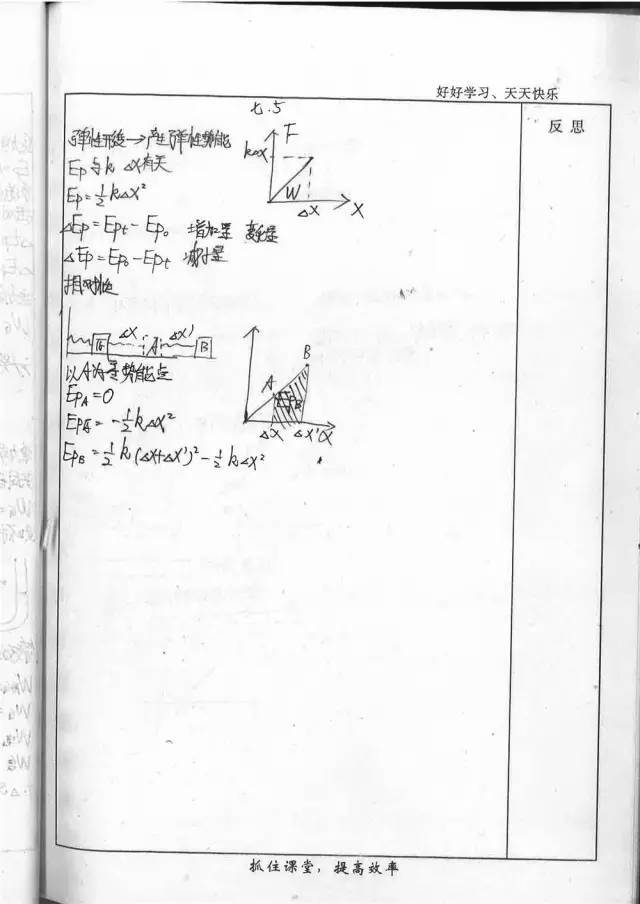 好好学习、天天快乐
七.5
反思
弹性形变→产生弹性势能
Ep与k Δx有关
Ep=½kΔx²
ΔEp=Ept-Ep₀ 增加量 变化量
ΔEp=Ep₀-Ept 减少量
相对性
F
kΔx
W
Δx
X
Δx
Δx'
A
B
以A为零势能点
EpA=0
Ep原=-½kΔx²
EpB=½k(Δx+Δx')²-½kΔx²
B
A
EpB
Δx
Δx'
抓住课堂，提高效率